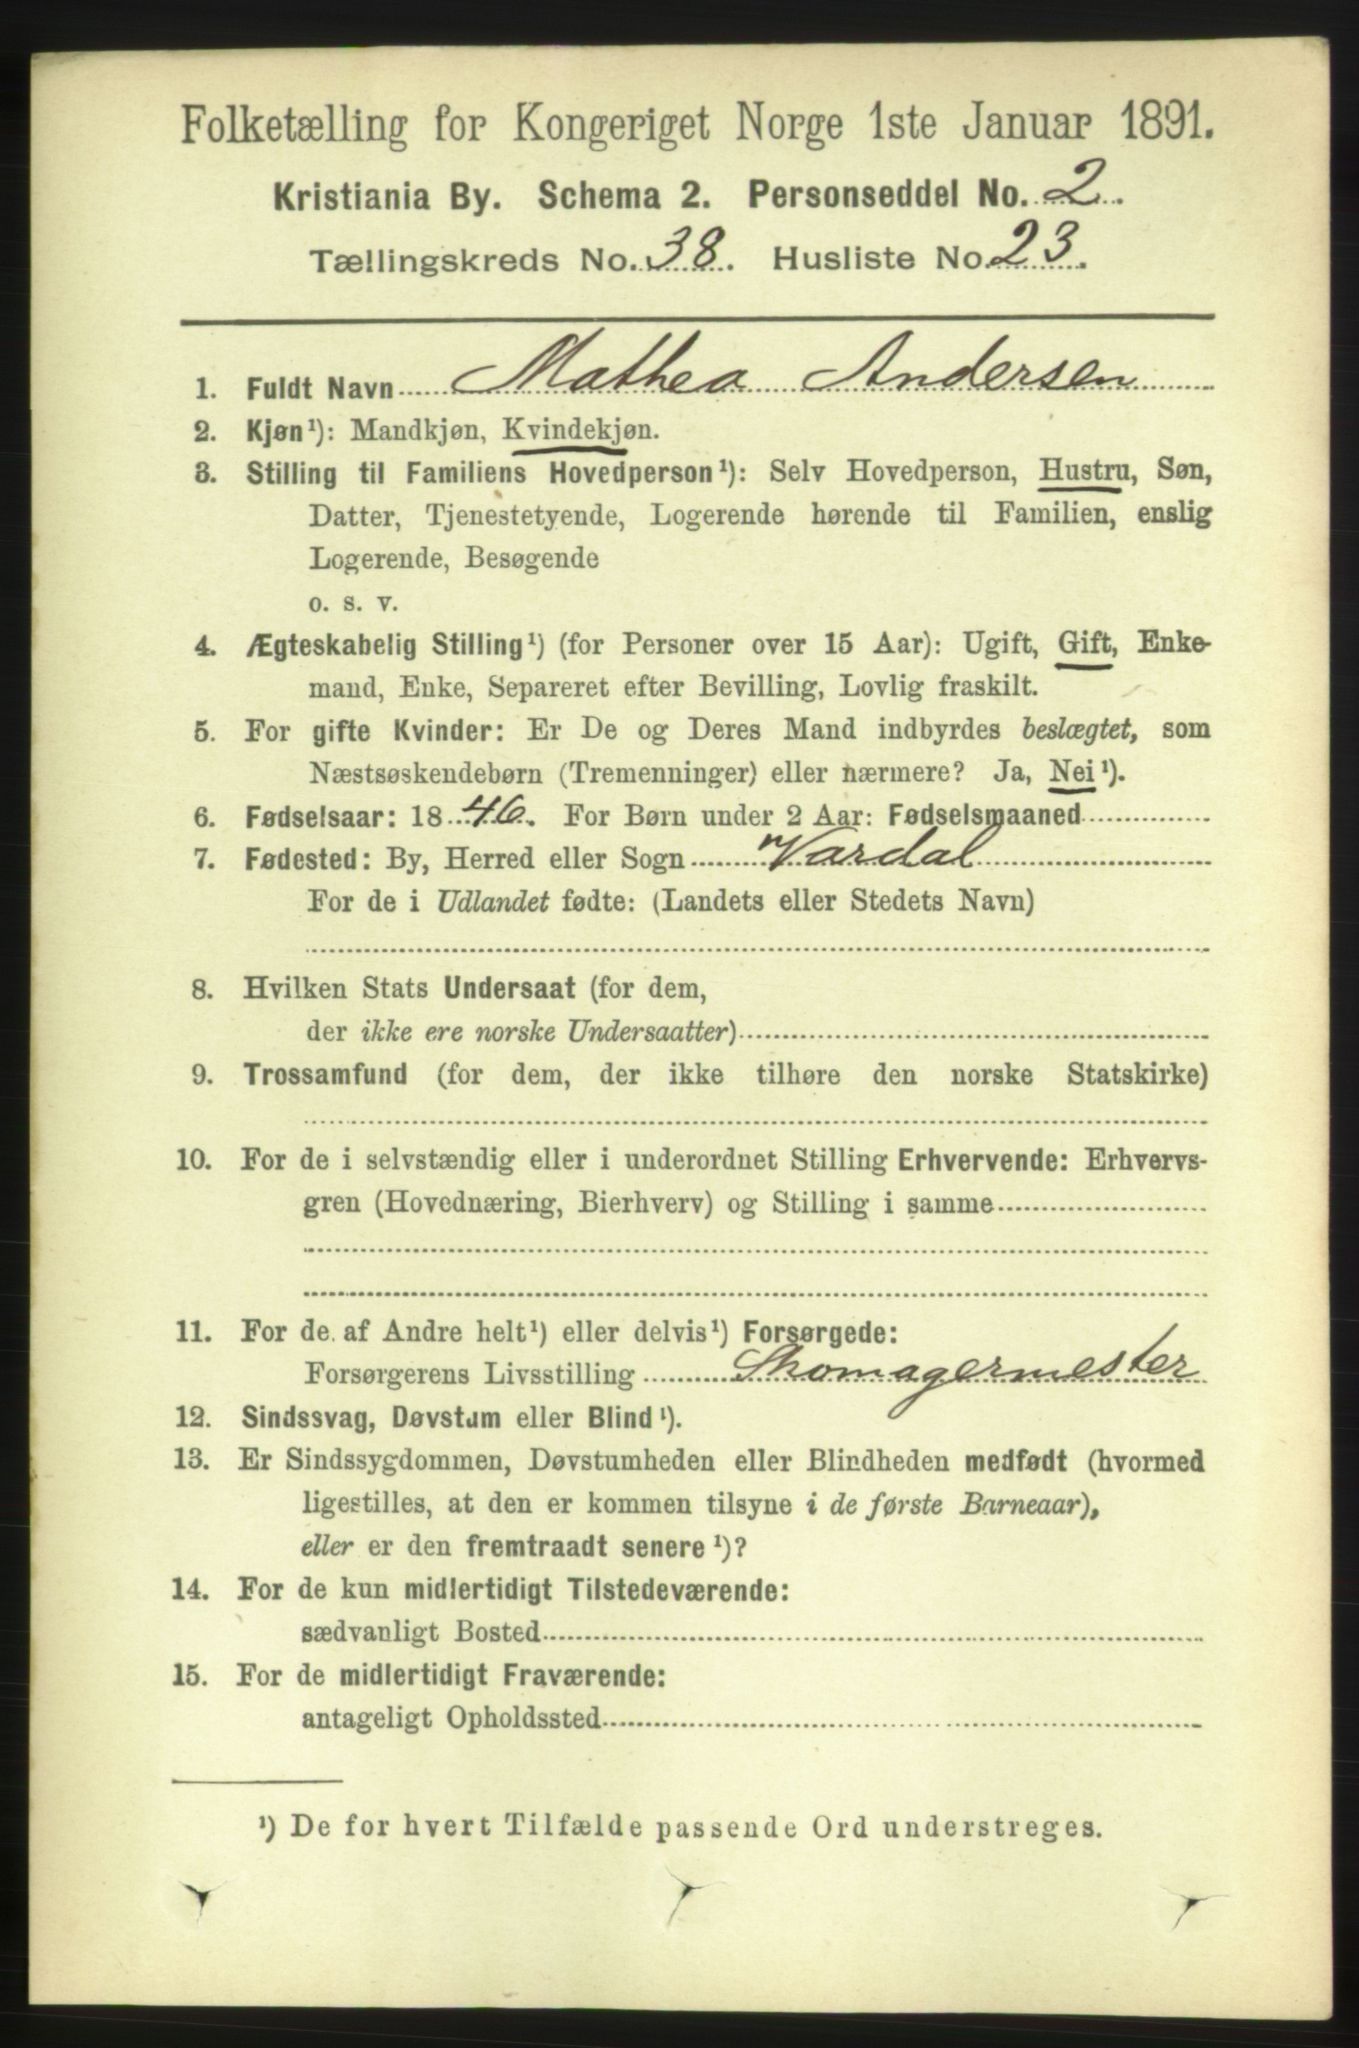 Folketælling for Kongeriget Norge 1ste Januar 1891.
Kristiania By. Schema 2. Personseddel No. 2.
Tællingskreds No. 38. Husliste No. 23.
1. Fuldt Navn Mathea Andersen
2. Kjøn¹): Mandkjøn, Kvindekjøn.
3. Stilling til Familiens Hovedperson¹): Selv Hovedperson, Hustru, Søn,
Datter, Tjenestetyende, Logerende hørende til Familien, enslig
Logerende, Besøgende
o. s. v.
4. Ægteskabelig Stilling¹) (for Personer over 15 Aar): Ugift, Gift, Enke-
mand, Enke, Separeret efter Bevilling, Lovlig fraskilt.
5. For gifte Kvinder: Er De og Deres Mand indbyrdes beslægtet, som
Næstsøskendebørn (Tremenninger) eller nærmere? Ja, Nei¹).
6. Fødselsaar: 1846. For Børn under 2 Aar: Fødselsmaaned
7. Fødested: By, Herred eller Sogn Vardal
For de i Udlandet fødte: (Landets eller Stedets Navn)
8. Hvilken Stats Undersaat (for dem,
der ikke ere norske Undersaatter)
9. Trossamfund (for dem, der ikke tilhøre den norske Statskirke)
10. For de i selvstændig eller i underordnet Stilling Erhvervende: Erhvervs-
gren (Hovednæring, Bierhverv) og Stilling i samme
11. For de af Andre helt¹) eller delvis¹) Forsørgede:
Forsørgerens Livsstilling Skomagermester
12. Sindssvag, Døvstum eller Blind¹).
13. Er Sindssygdommen, Døvstumheden eller Blindheden medfødt (hvormed
ligestilles, at den er kommen tilsyne i de første Barneaar),
eller er den fremtraadt senere¹)?
14. For de kun midlertidigt Tilstedeværende:
sædvanligt Bosted
15. For de midlertidigt Fraværende:
antageligt Opholdssted
¹) De for hvert Tilfælde passende Ord understreges.